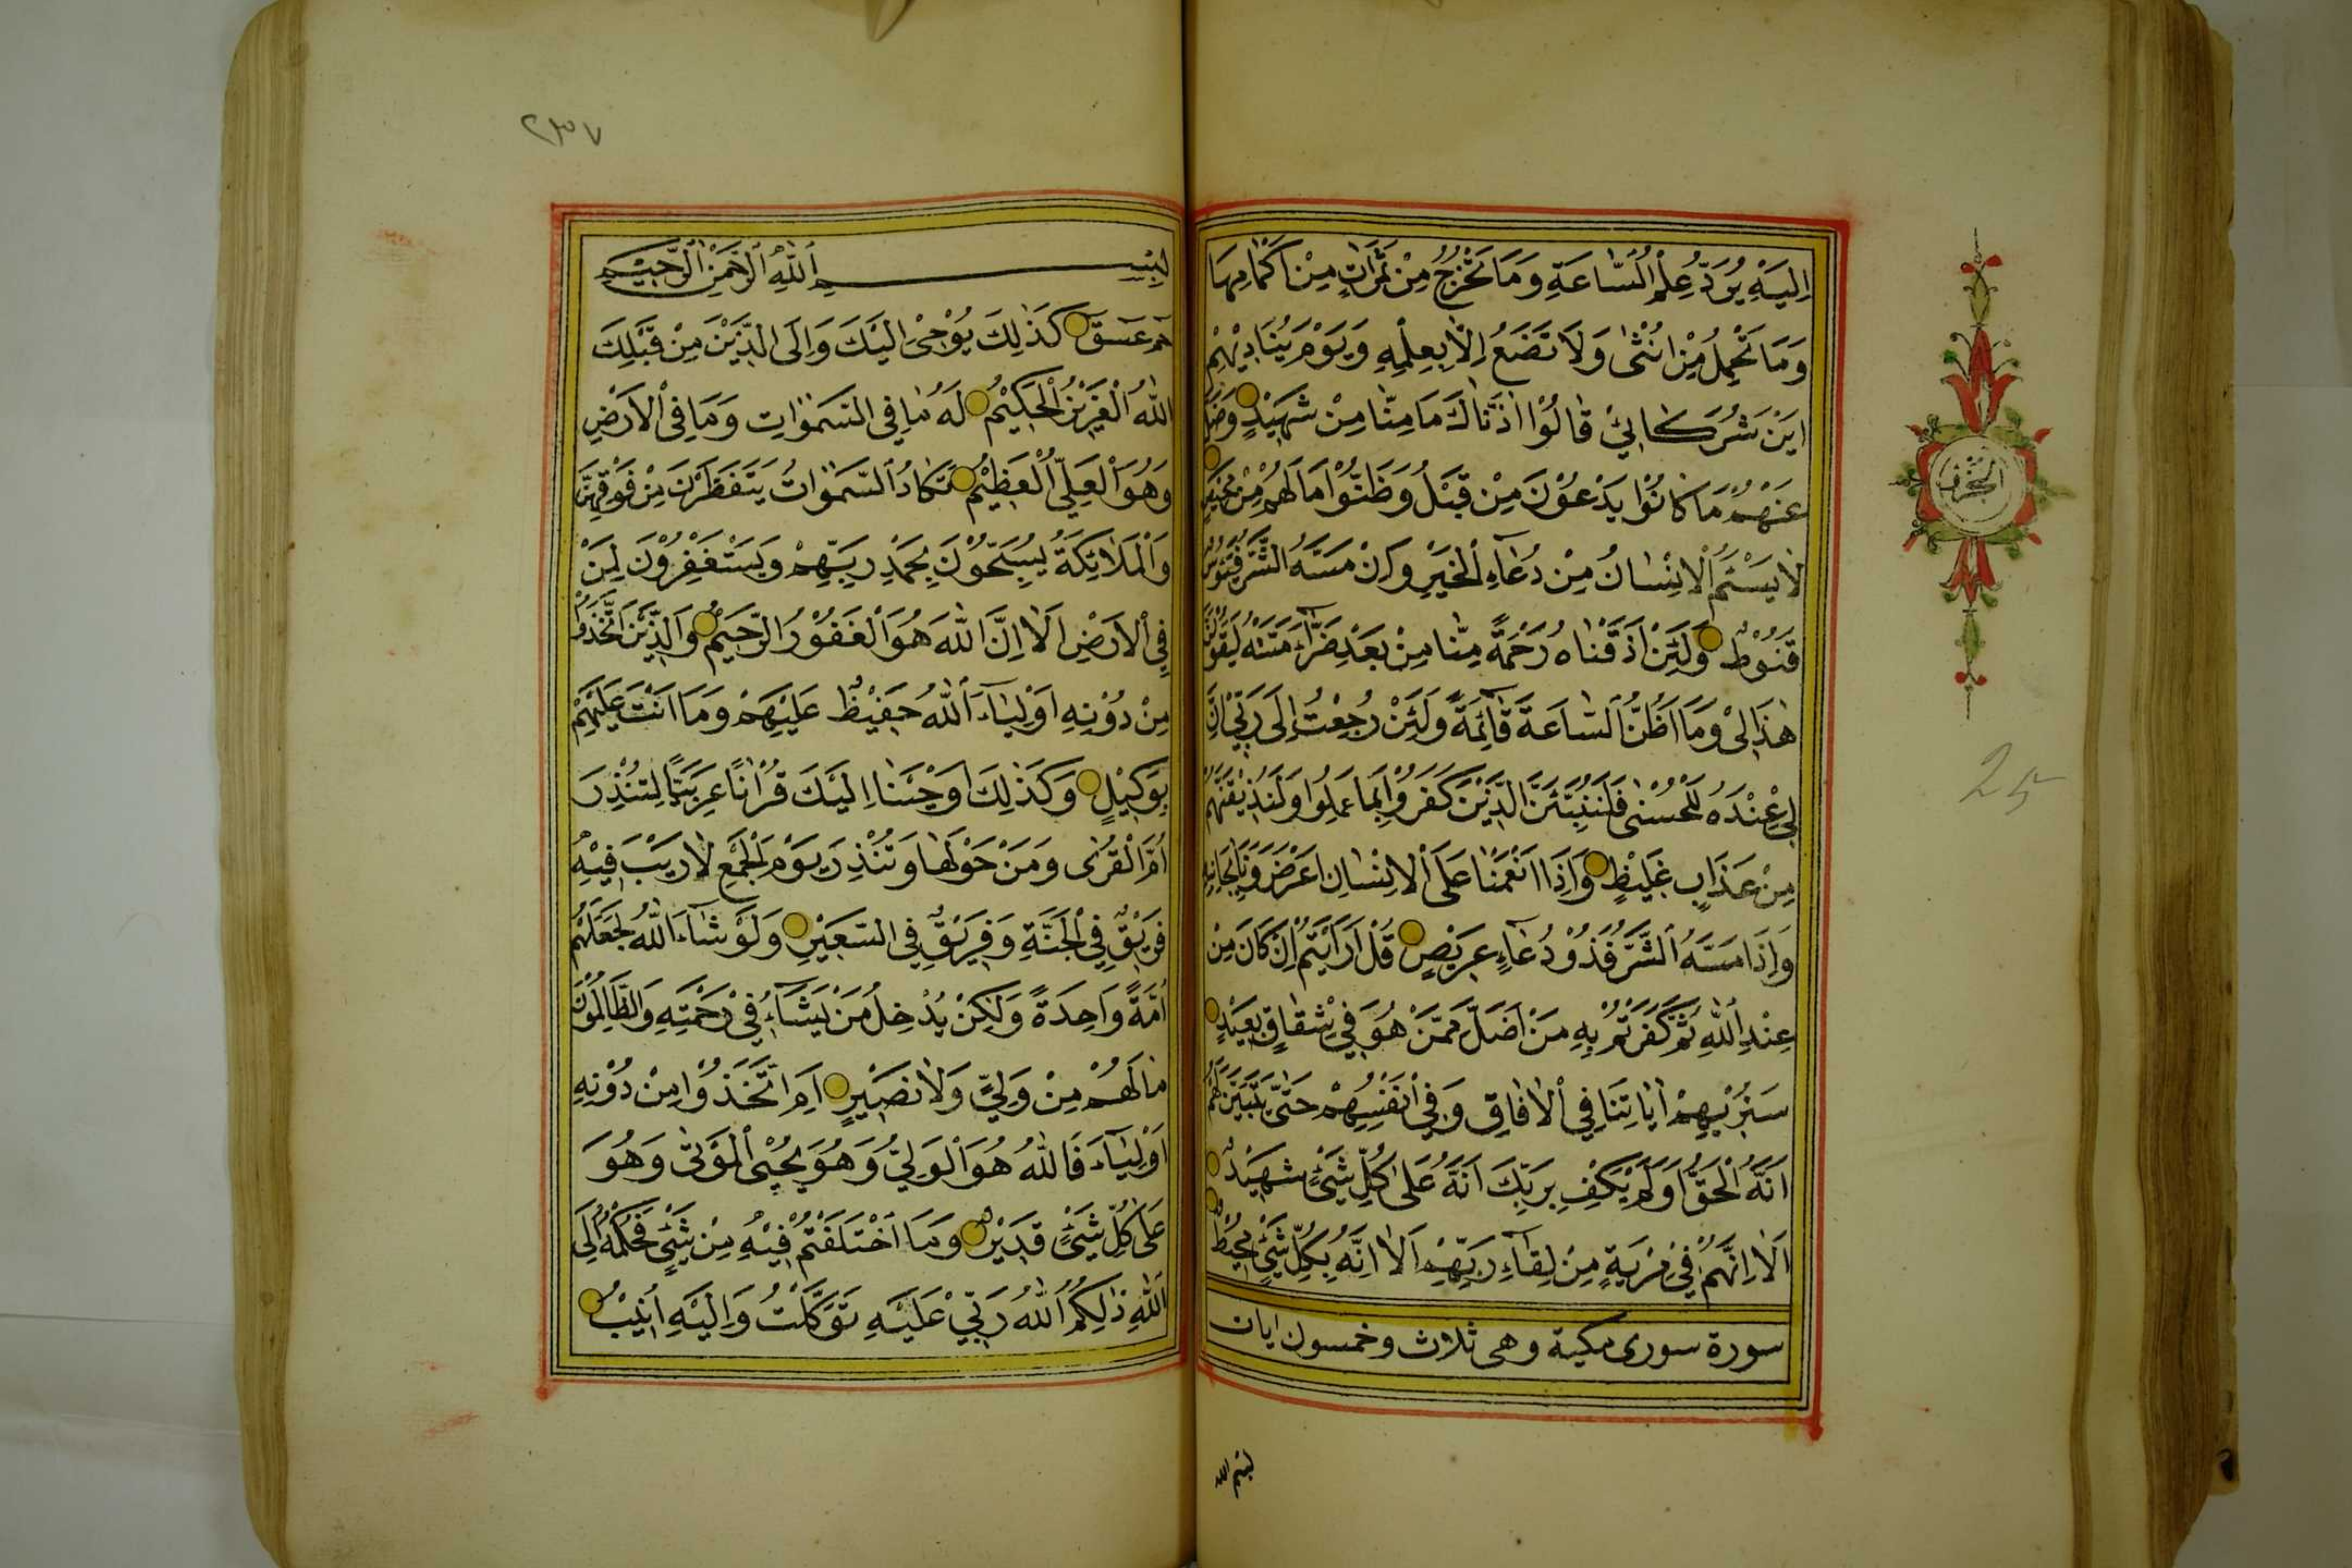 اِلَيْهِ يُرَدُّ عِلْمُ السَّاعَةِ وَمَا تَخْرُجُ مِنْ ثَمَرَاتٍ مِنْ اَكْمَامِهَا
وَمَا تَحْمِلُ مِنْ اُنْثٰى وَلَا تَضَعُ اِلَّا بِعِلْمِهِ وَيَوْمَ يُنَادِيْهِمْ
اَيْنَ شُرَكَائِيْ قَالُوْا اٰذَنَّاكَ مَا مِنَّا مِنْ شَهِيْدٍ وَضَلَّ
عَنْهُمْ مَا كَانُوْا يَدْعُوْنَ مِنْ قَبْلُ وَظَنُّوْا مَا لَهُمْ مِنْ مَحِيْصٍ
لَا يَسْئَمُ الْاِنْسَانُ مِنْ دُعَاءِ الْخَيْرِ وَاِنْ مَسَّهُ الشَّرُّ فَيَؤُسٌ
قَنُوْطٌ وَلَئِنْ اَذَقْنَاهُ رَحْمَةً مِنَّا مِنْ بَعْدِ ضَرَّاءَ مَسَّتْهُ لَيَقُوْلَنَّ
هٰذَا لِيْ وَمَا اَظُنُّ السَّاعَةَ قَائِمَةً وَلَئِنْ رُجِعْتُ اِلَى رَبِّيْ اِنَّ
لِيْ عِنْدَهُ لَلْحُسْنٰى فَلَنُنَبِّئَنَّ الَّذِيْنَ كَفَرُوْا بِمَا عَمِلُوا وَلَنُذِيْقَنَّهُمْ
مِنْ عَذَابٍ غَلِيْظٍ وَاِذَا اَنْعَمْنَا عَلَى الْاِنْسَانِ اَعْرَضَ وَنَاٰ بِجَانِبِهِ
وَاِذَا مَسَّهُ الشَّرُّ فَذُوْ دُعَاءٍ عَرِيْضٍ قُلْ اَرَاَيْتُمْ اِنْ كَانَ مِنْ
عِنْدِ اللهِ ثُمَّ كَفَرْتُمْ بِهِ مَنْ اَضَلُّ مِمَّنْ هُوَ فِيْ شِقَاقٍ بَعِيْدٍ
سَنُرِيْهِمْ اٰيَاتِنَا فِي الْاٰفَاقِ وَفِيْ اَنْفُسِهِمْ حَتّٰى يَتَبَيَّنَ لَهُمْ
اَنَّهُ الْحَقُّ اَوَلَمْ يَكْفِ بِرَبِّكَ اَنَّهُ عَلٰى كُلِّ شَيْئٍ شَهِيْدٌ
اَلَا اِنَّهُمْ فِيْ مِرْيَةٍ مِنْ لِقَاءِ رَبِّهِمْ اَلَا اِنَّهُ بِكُلِّ شَيْئٍ مُحِيْطٌ
سورة سورى مكية وهى ثلاث وخمسون ايات
بسم الله
الجزؤ
25
٢٣٧
بِسْمِ اللهِ الرَّحْمٰنِ الرَّحِيْمِ
حٰمٓ عٓسٓقٓ كَذٰلِكَ يُوْحِىْ اِلَيْكَ وَاِلَى الَّذِيْنَ مِنْ قَبْلِكَ
اللهُ الْعَزِيْزُ الْحَكِيْمُ لَهُ مَا فِي السَّمٰوَاتِ وَمَا فِى الْاَرْضِ
وَهُوَ الْعَلِيُّ الْعَظِيْمُ تَكَادُ السَّمٰوَاتُ يَتَفَطَّرْنَ مِنْ فَوْقِهِنَّ
وَالْمَلَائِكَةُ يُسَبِّحُوْنَ بِحَمْدِ رَبِّهِمْ وَيَسْتَغْفِرُوْنَ لِمَنْ
فِى الْاَرْضِ اَلَا اِنَّ اللهَ هُوَ الْغَفُوْرُ الرَّحِيْمُ وَالَّذِيْنَ اتَّخَذُوْا
مِنْ دُوْنِهِ اَوْلِيَاءَ اللهُ حَفِيْظٌ عَلَيْهِمْ وَمَا اَنْتَ عَلَيْهِمْ
بِوَكِيْلٍ وَكَذٰلِكَ اَوْحَيْنَا اِلَيْكَ قُرْاٰنًا عَرَبِيًّا لِتُنْذِرَ
اُمَّ الْقُرٰى وَمَنْ حَوْلَهَا وَتُنْذِرَ يَوْمَ الْجَمْعِ لَا رَيْبَ فِيْهِ
فَرِيْقٌ فِي الْجَنَّةِ وَفَرِيْقٌ فِي السَّعِيْرِ وَلَوْ شَاءَ اللهُ لَجَعَلَهُمْ
اُمَّةً وَاحِدَةً وَلٰكِنْ يُدْخِلُ مَنْ يَشَاءُ فِيْ رَحْمَتِهِ وَالظَّالِمُوْنَ
مَا لَهُمْ مِنْ وَلِيٍّ وَلَا نَصِيْرٍ اَمِ اتَّخَذُوْا مِنْ دُوْنِهِ
اَوْلِيَاءَ فَاللهُ هُوَ الْوَلِيُّ وَهُوَ يُحْيِى الْمَوْتٰى وَهُوَ
عَلٰى كُلِّ شَيْئٍ قَدِيْرٌ وَمَا اخْتَلَفْتُمْ فِيْهِ مِنْ شَيْئٍ فَحُكْمُهُ اِلَى
اللهِ ذٰلِكُمُ اللهُ رَبِّيْ عَلَيْهِ تَوَكَّلْتُ وَاِلَيْهِ اُنِيْبُ